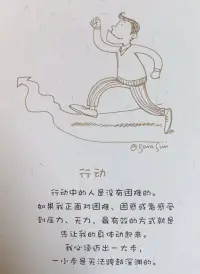 @Sara Sun
行动
行动中的人是没有困难的。
如果我正面对困难、困惑或者感受
到压力、无力，最有效的方式就是
先让我的身体动起来。
我必须迈出一大步，
一小步是无法跨越深渊的。